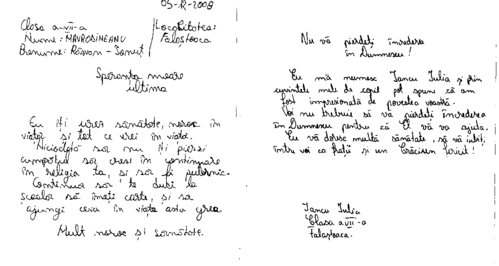 05-12-2008
Clasa a VII-a
Nume: MAVRODINEANU
Prenume: Răzvan-Ionuț
Localitatea:
Falaștoaca
Speranța moare
ultima
Eu îți urez sănătate, noroc în
viață și tot ce vrei în viață.
Niciodată să nu îți pierzi
cumpătul să crezi în continuare
în religia ta, și să fi puternic.
Continuă să te duci la
școală să înveți carte, și să
ajungi ceva în viața asta grea.
Mult noroc și sănătate.
Nu vă pierdeți încrederea
în Dumnezeu!
Eu mă numesc Iancu Iulia și prin
cuvintele mele de copil pot spune că am
fost impresionată de povestea voastră.
Voi nu trebuie să vă pierdeți încrederea
în Dumnezeu pentru că El vă va ajuta.
Eu vă doresc multă sănătate, să vă iubiți
între voi ca frații și un Crăciun fericit!
Iancu Iulia
Clasa a VII-a
Falaștoaca.